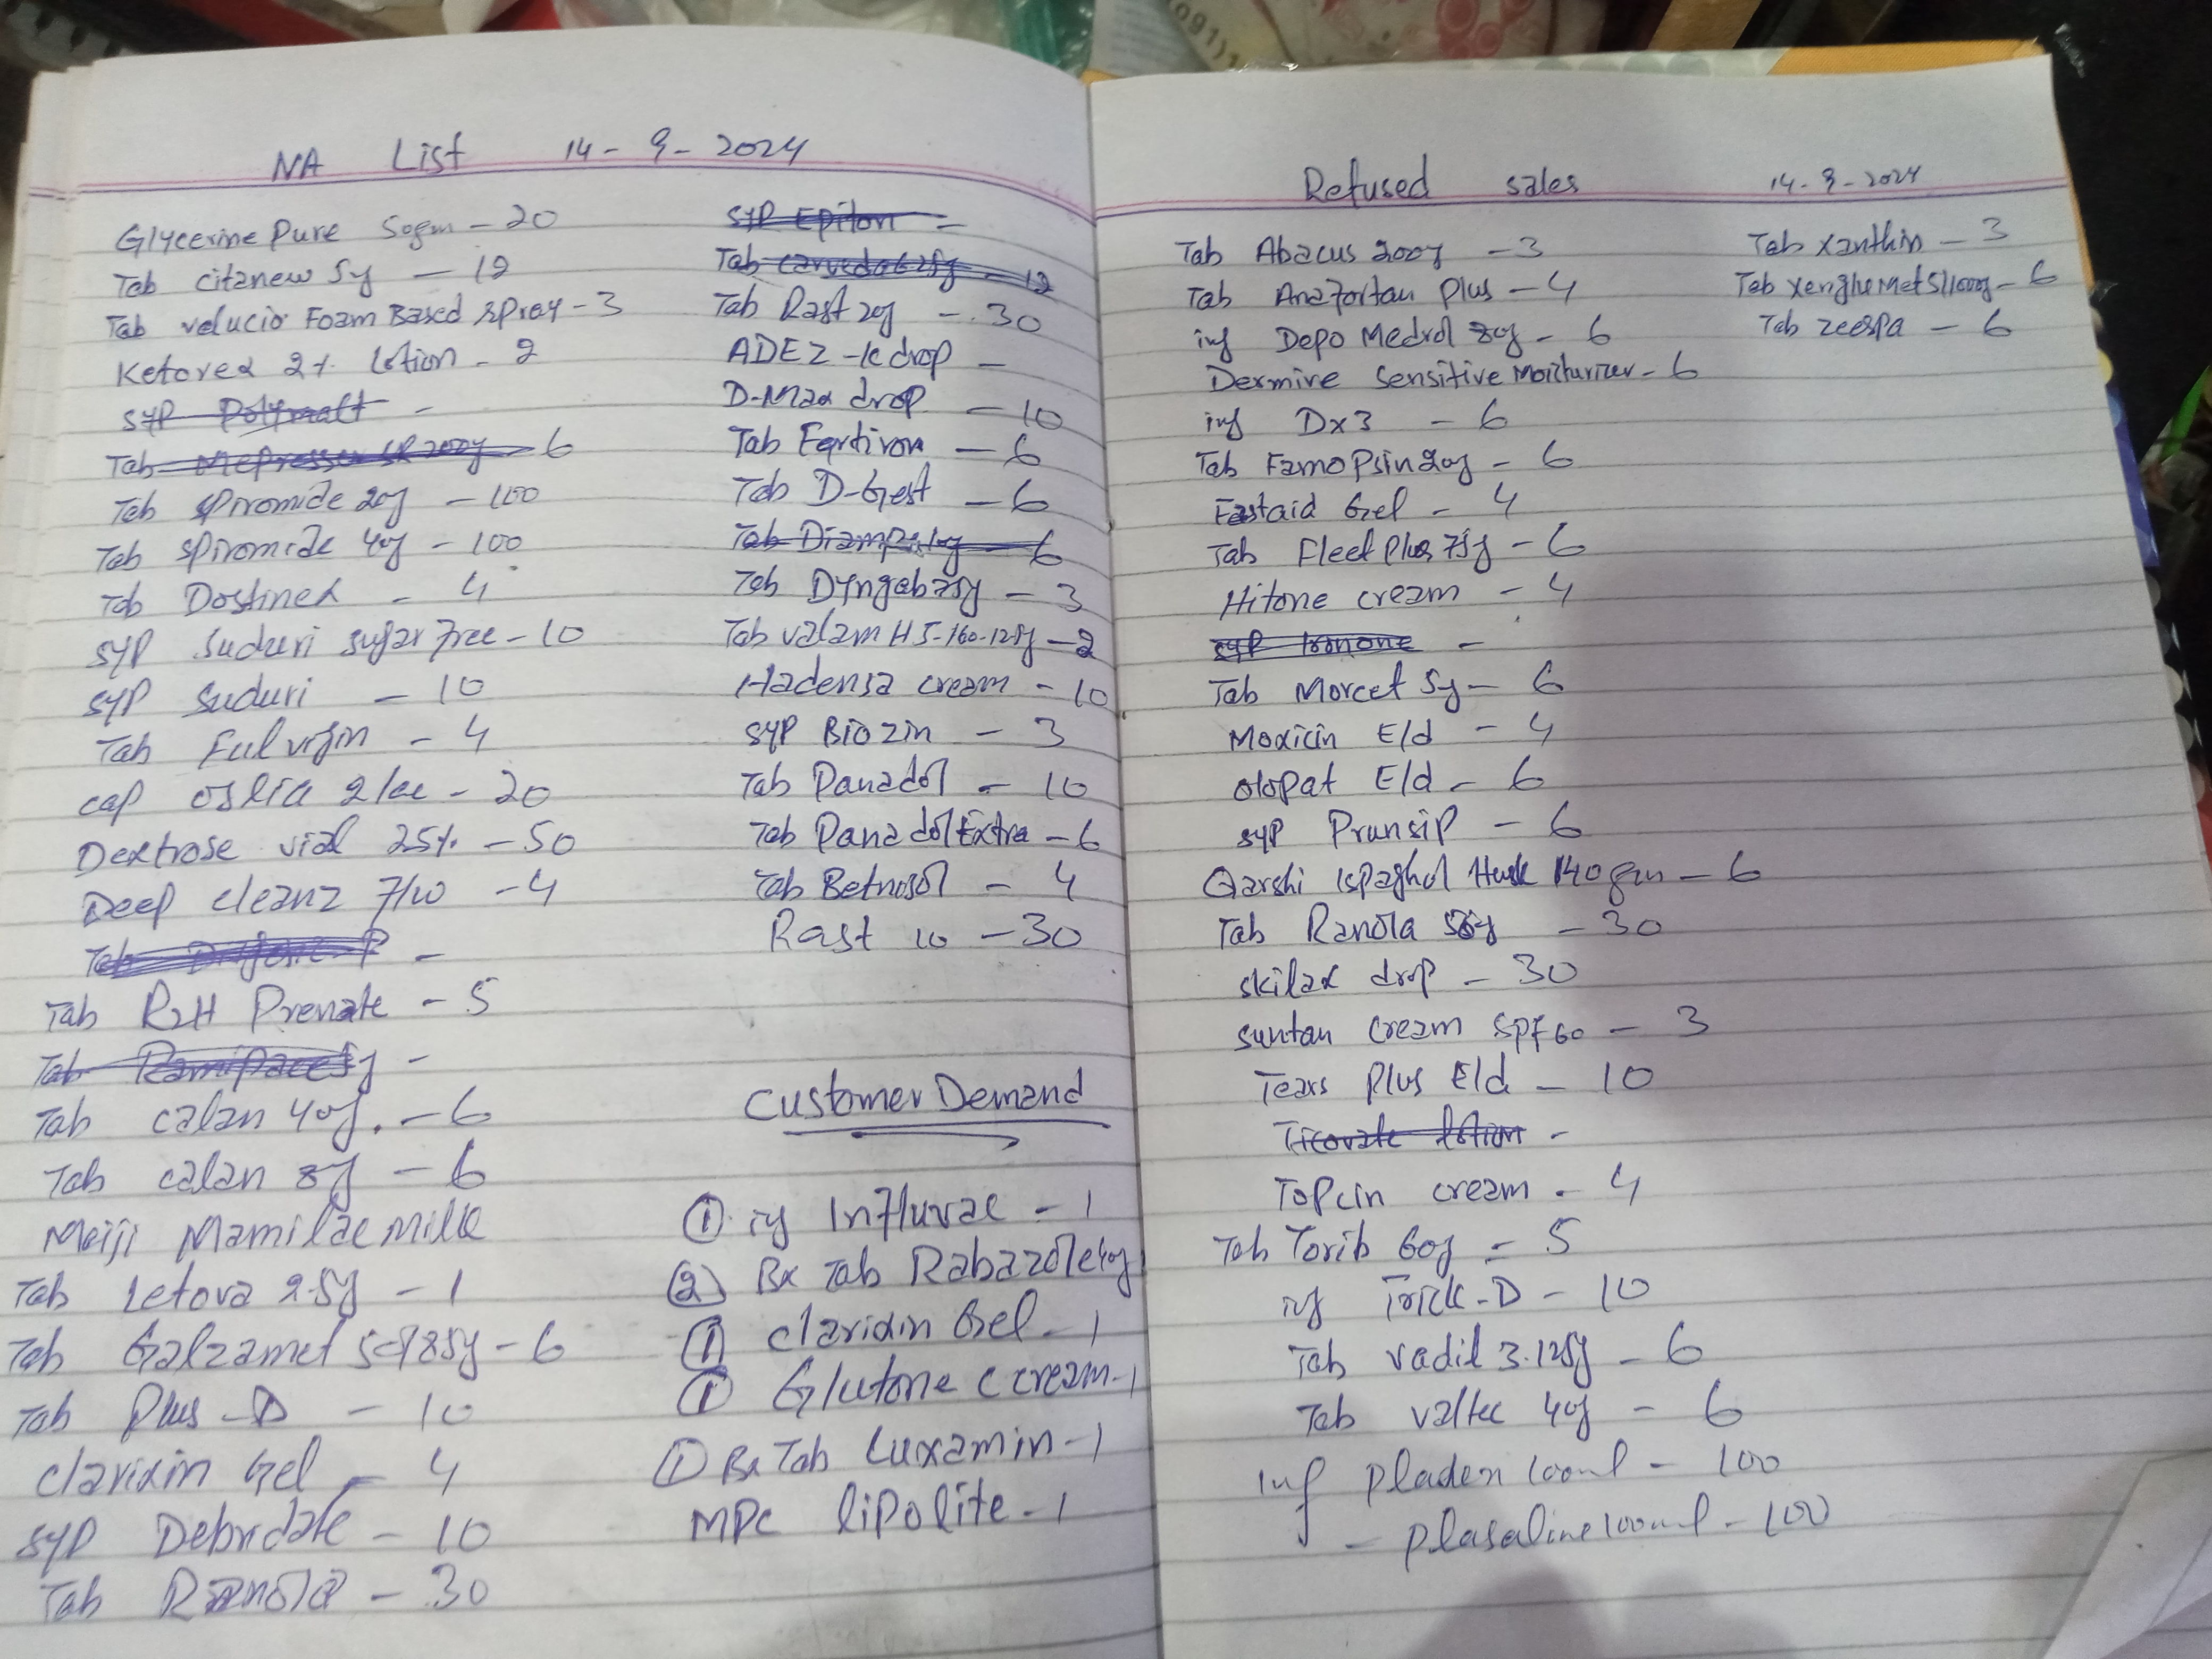 NA List 14-9-2024
Glycerine Pure 50gm - 20
Tab Citanew 5g - 12
Tab velucio Foam Based spray - 3
Ketorex 2% Lotion - 2
SYP Polymalt -
Tab Mepressor SR 200g - 6
Tab Spiromide 20g - 100
Tab Spiromide 40g - 100
Tab Dostinex - 4
SYP Suduri Sugar Free - 10
SYP Suduri - 10
Tab Fulvigin - 4
Cap Oslia 2/cc - 20
Dextrose vial 25% - 50
Deep cleanz F/W - 4
Tab
Tab R2H Prenate - 5
Tab Ramipace 5g -
Tab Calan 40g. - 6
Tab Calan 8g - 6
Meiji Mamilac Milk
Tab Letova 2.5g - 1
Tab Galzamet 50/85g - 6
Tab Plus-D - 10
Clarixin Gel - 4
SYP Debridate - 10
Tab Ranola - 30
SYP Epiton =
Tab Carveda 6.25g - 12
Tab Rast 20g - 30
ADEZ-K drop -
D-Max drop - 10
Tab Fertiron - 6
Tab D-Gest - 6
Tab Diampa 10g - 6
Tab Dyngab 75g - 3
Tab Valam H 5-160-12.5g - 2
Hadensa cream - 10
SYP Biozin - 3
Tab Panadol - 10
Tab Panadol Extra - 6
Tab Betnosol - 4
Rast 10 - 30
Customer Demand
① inj Influvac - 1
② Bx Tab Rabazole 40g
① Clarixin Gel - 1
① Glutone C cream - 1
① Bx Tab Luxamin - 1
MPC lipolite - 1
Refused sales 14-9-2024
Tab Abacus 200g - 3
Tab Anafortan Plus - 4
inj Depo Medrol 80g - 6
Dermive Sensitive Moisturizer - 6
inj Dx3 - 6
Tab Famopsin 20g - 6
Fastaid Gel - 4
Tab Fleet Plus 75g - 6
Hitone cream - 4
SYP Ironone -
Tab Morcet 5g - 6
Moxicin E/d - 4
Olopat E/d - 6
SYP Prunsip - 6
Qarshi Ispaghol Husk 140gm - 6
Tab Ranola 500g - 30
Skilax drop - 30
Suntan Cream SPF 60 - 3
Tears Plus E/d - 10
Ticovate lotion -
Topcin cream - 4
Tab Torib 60g = 5
inj Trick-D - 10
Tab Vadil 3.125g - 6
Tab Valtec 40g - 6
Inf Pladex 100ml - 100
- Plasaline 100ml - 100
Tab Xanthin - 3
Tab Xenglu Met 5/1000g - 6
Tab Zeespa - 6